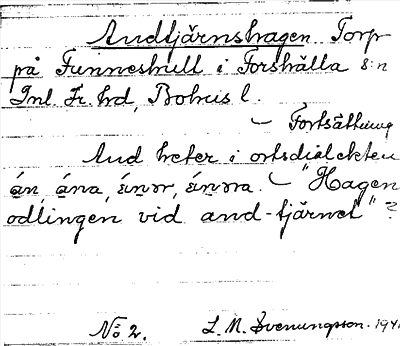 Andtjärnshagen Torp
på Funneshult i Forshälla s:n
Inl. Fr. hd, Bohus l.
– Fortsättning
And heter i ortsdialekten
án, ána, ánor, ánɔra. – "Hagen
odlingen vid and-tjärnet" ?
No 2. L. M. Svenungsson. 1941